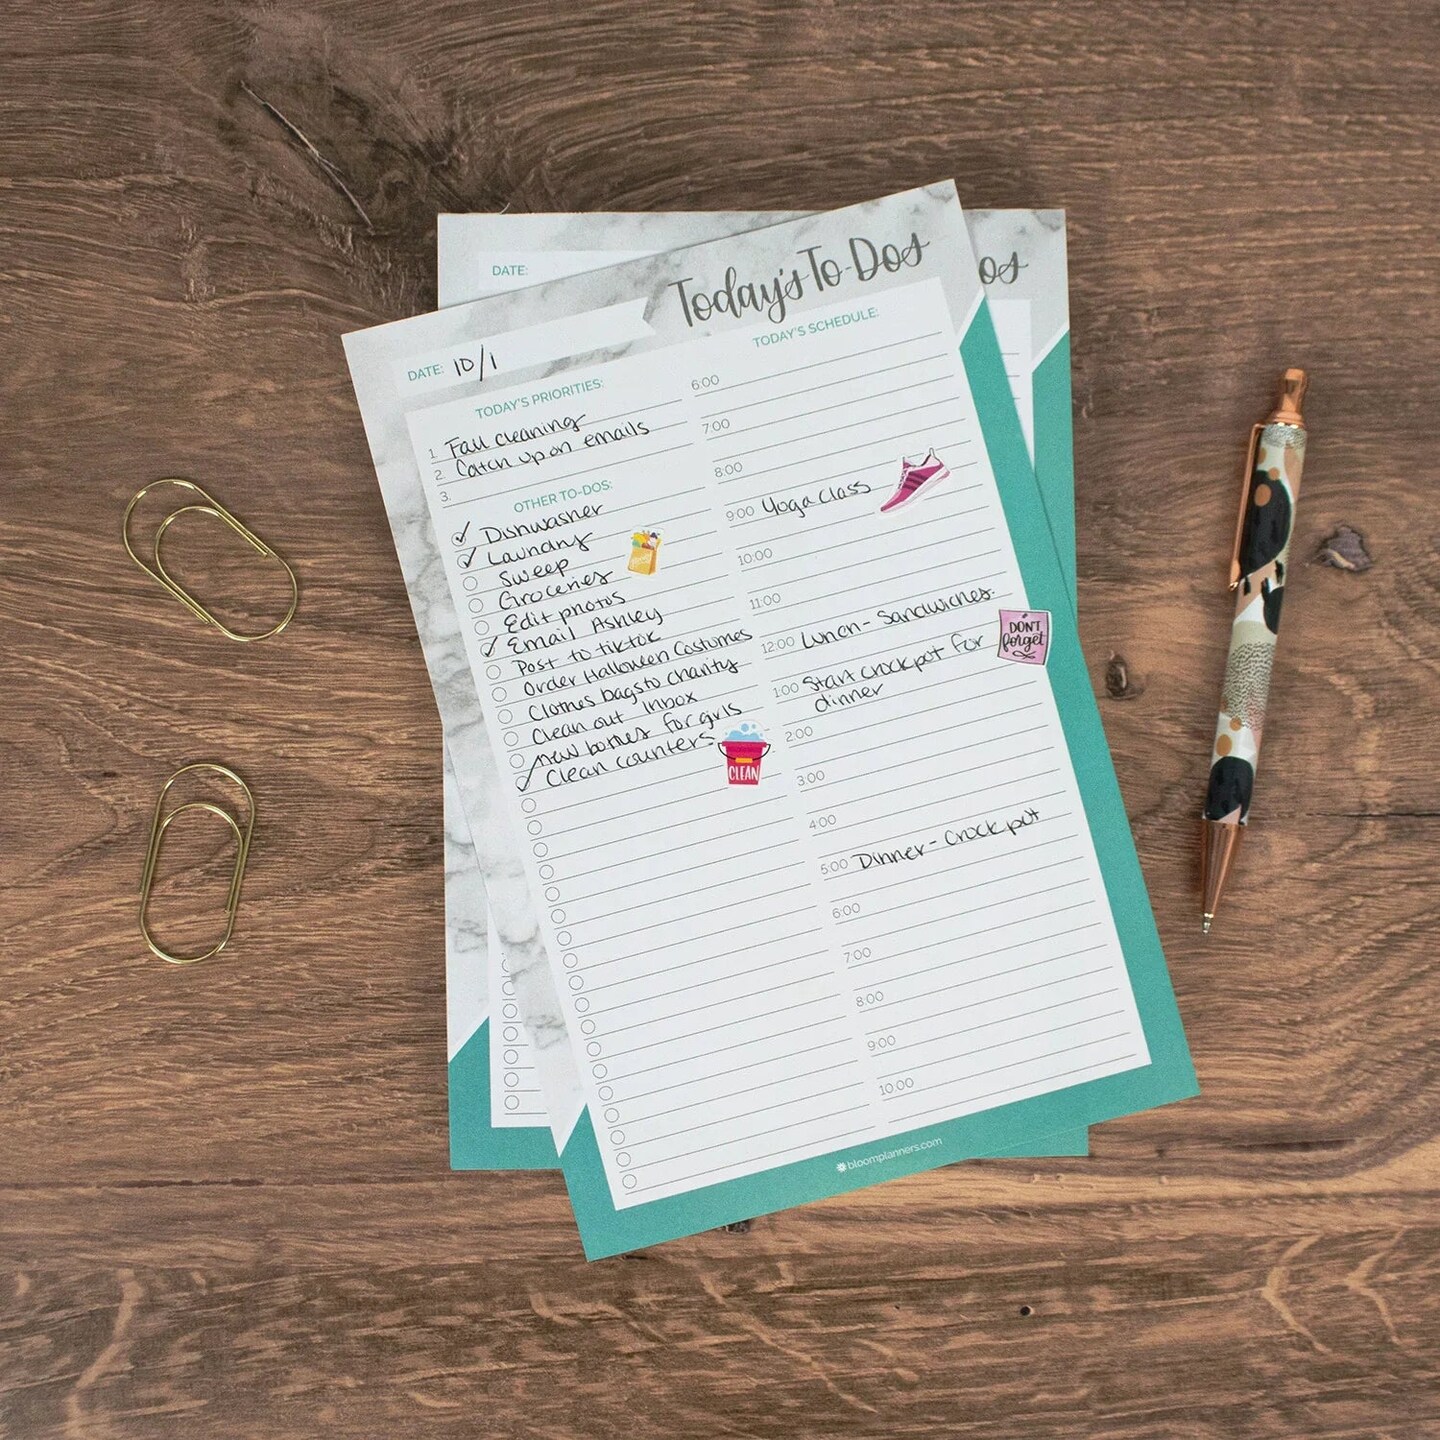 DATE:
os
Today's To-Dos
DATE: 10/1
TODAY'S PRIORITIES:
1. Fall cleaning
2. Catch up on emails
3.
OTHER TO-DOS:
Dishwasher
Laundry
Sweep
Groceries
Edit photos
Email Ashley
Post to tiktok
Order Halloween Costumes
Clothes bags to charity
Clean out Inbox
new bottles for girls
Clean counters
CLEAN
TODAY'S SCHEDULE:
6:00
7:00
8:00
9:00 Yoga class
10:00
11:00
12:00 Lunch - Sandwiches
1:00 Start crockpot for
dinner
DON'T
forget
2:00
3:00
4:00
5:00 Dinner - Crockpot
6:00
7:00
8:00
9:00
10:00
bloomplanners.com